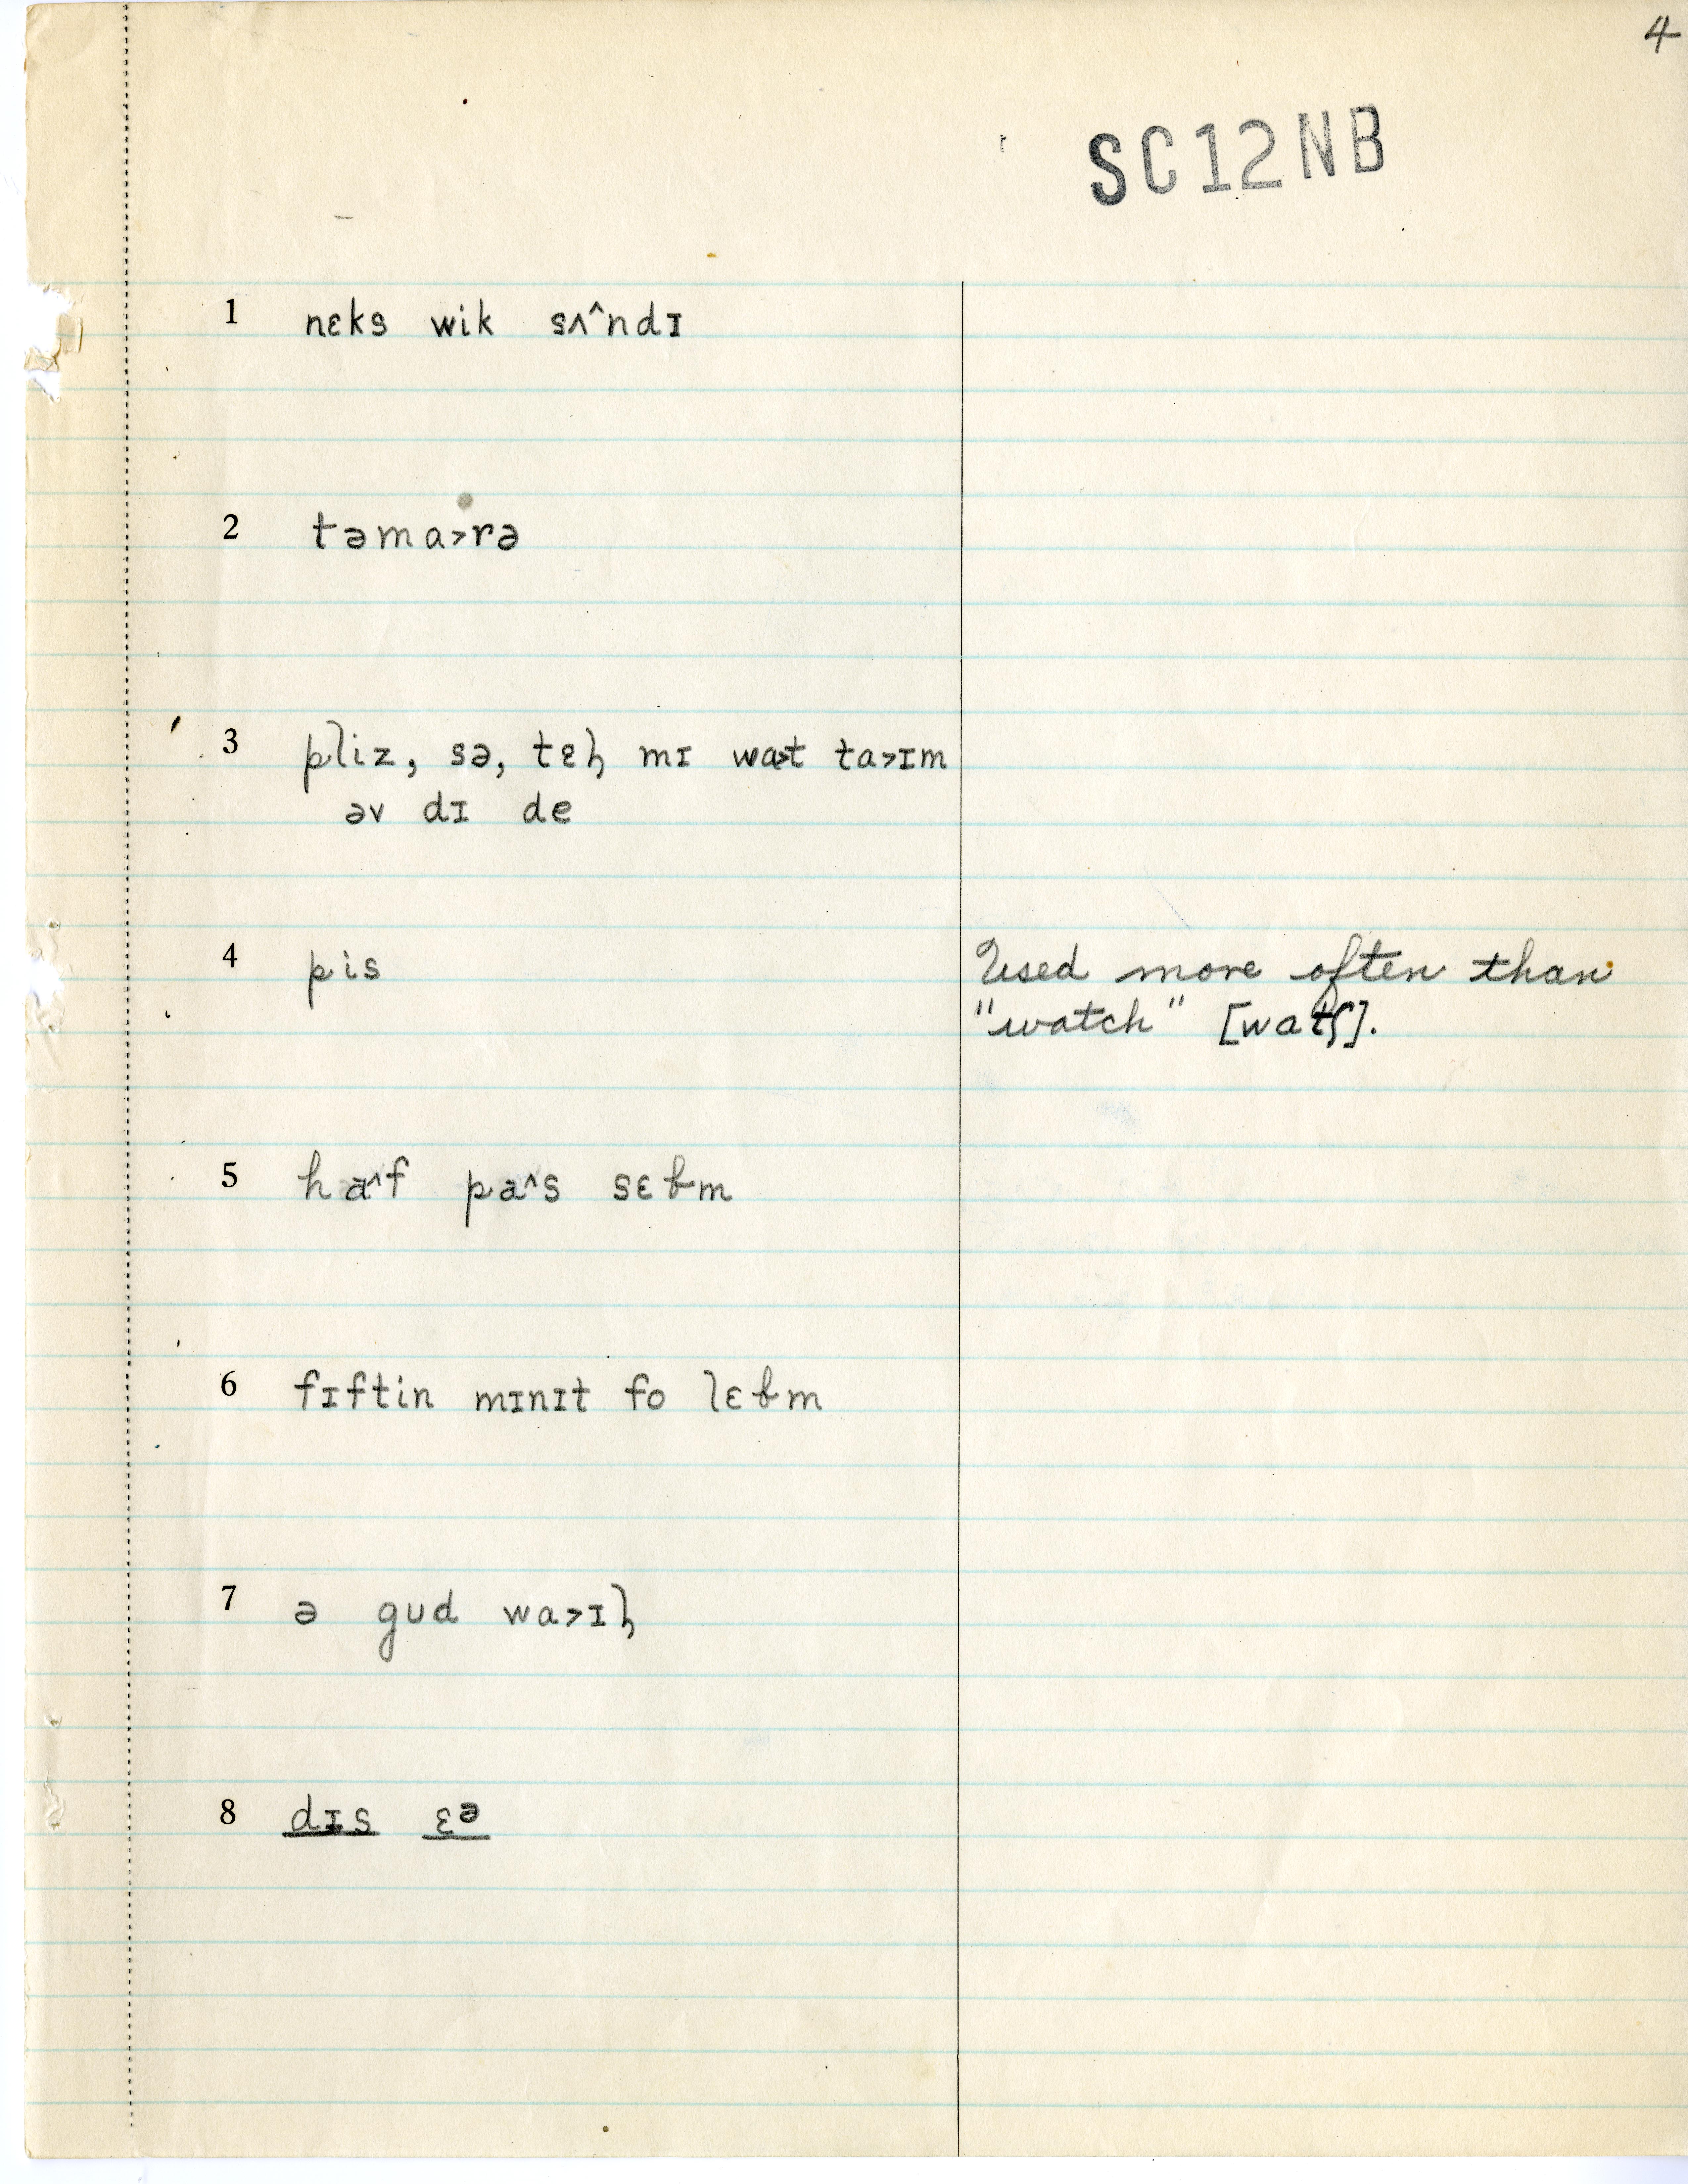 4
SC12NB
1 nɛks wik sʌ^ndɪ
2 təma>rə
3 pliz, sə, tɛɫ mɪ wa>t ta>ɪm
əv dɪ de
4 pis
Used more often than
"watch" [watʃ].
5 ha^f pa^s sɛɓm
6 fɪftin mɪnɪt fo lɛɓm
7 ə gud wa>ɪɫ
8 dɪs ɛə